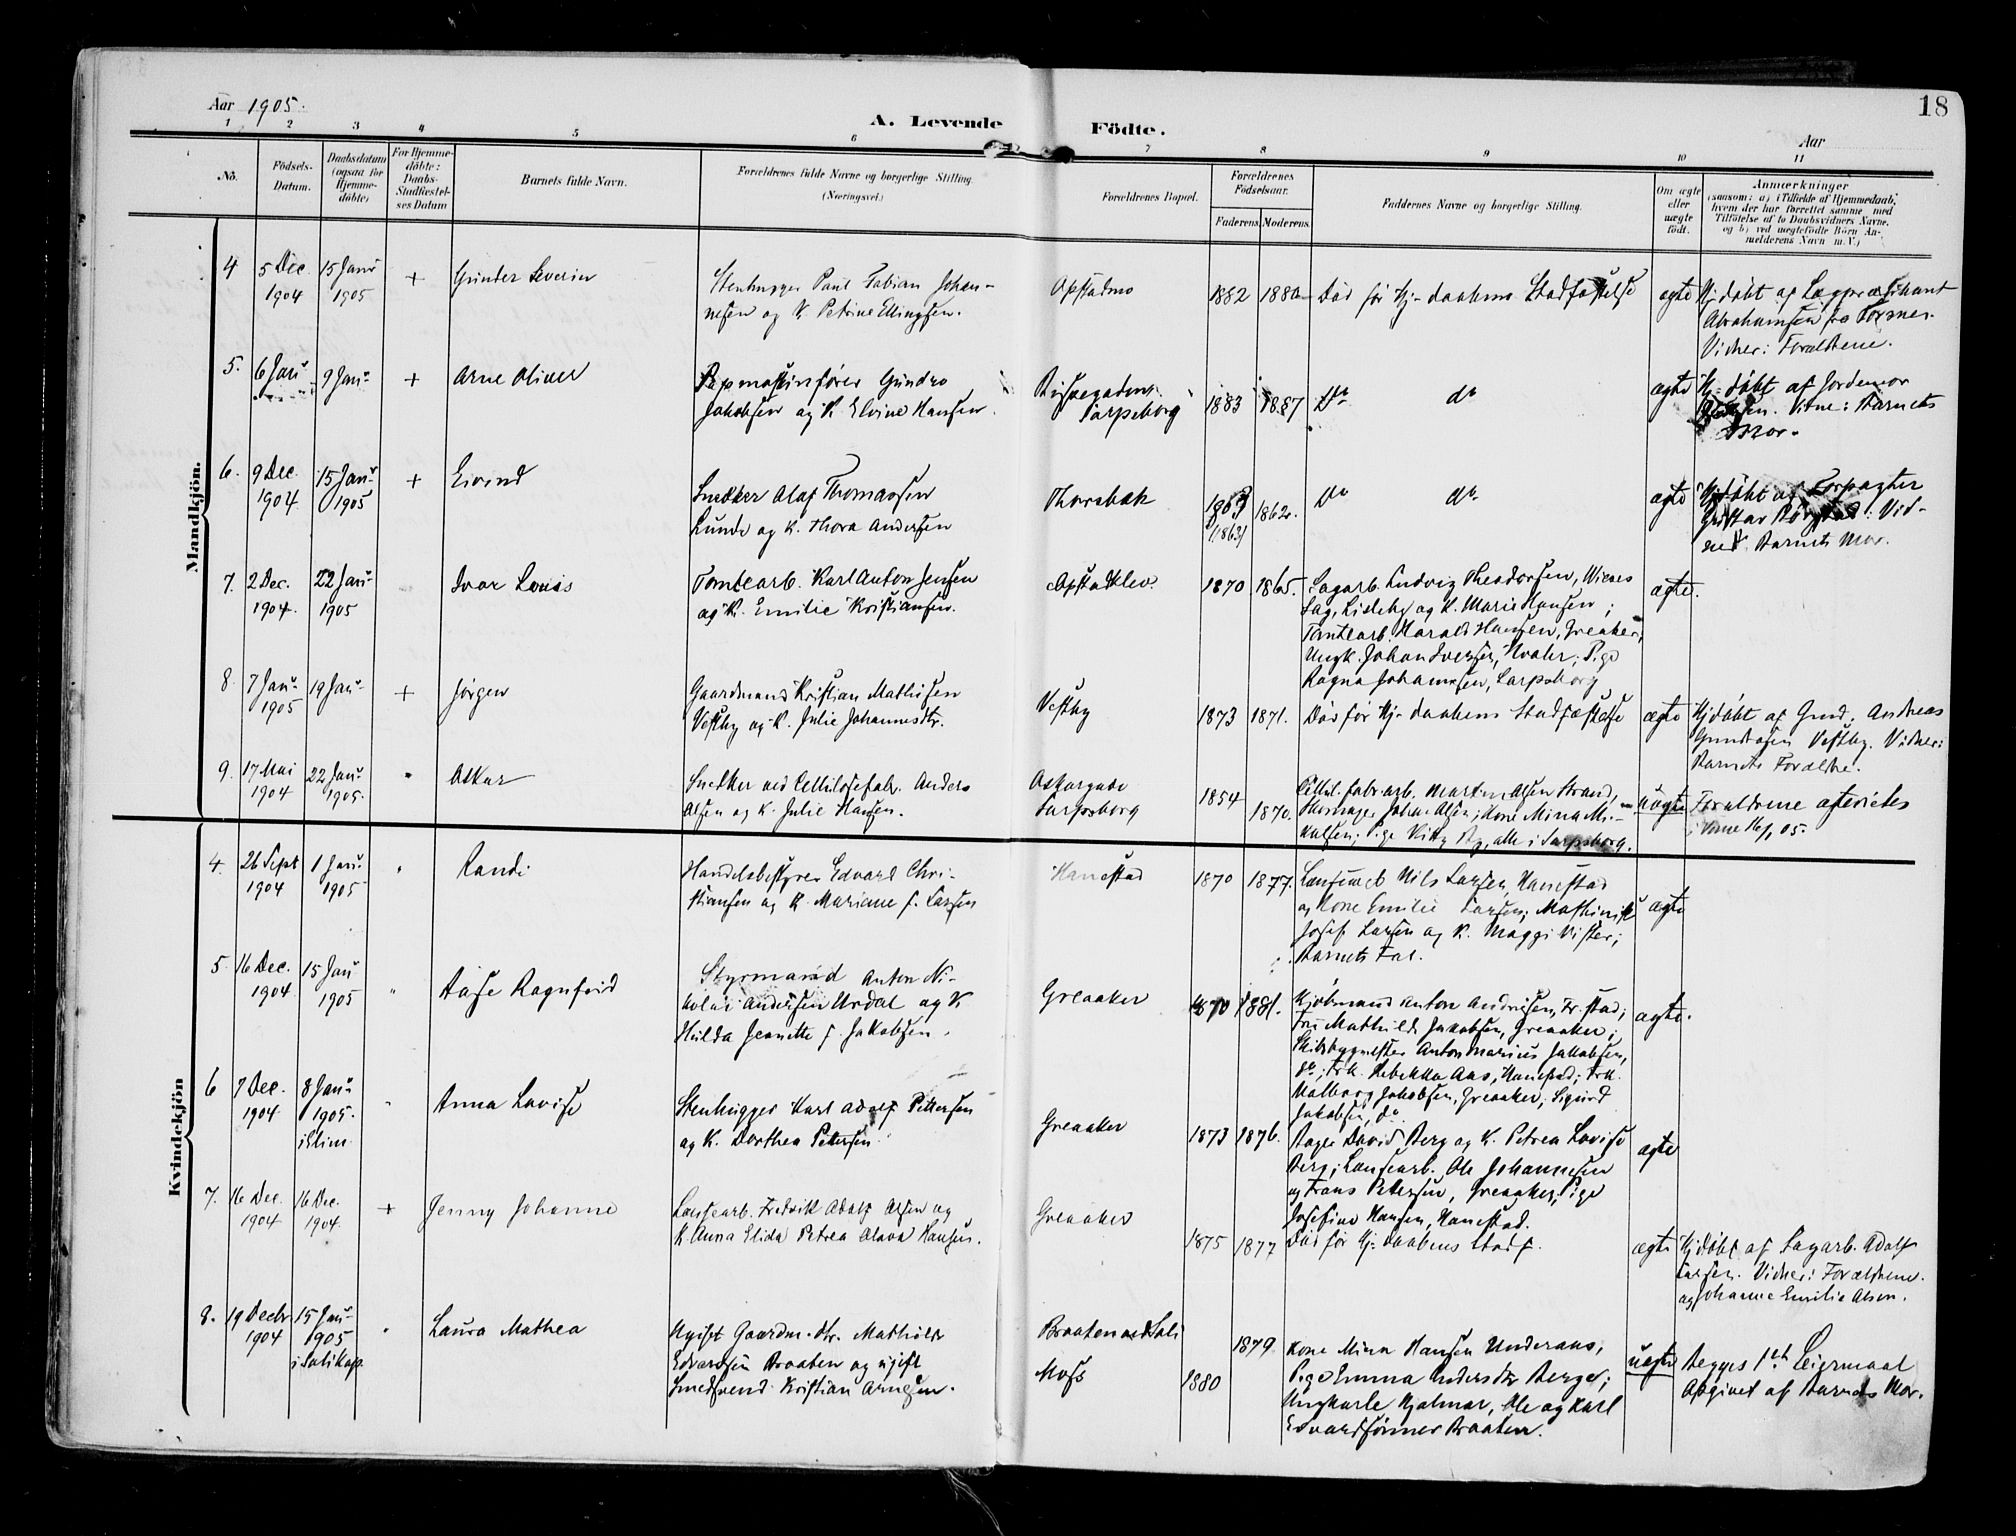 18
Aar 1905.
A. Levende Födte.
Aar
1 2 3 4 5 6 7 8 9 10 11
No.
Födsels-
Datum.
Daabsdatum
(ogsaa for
Hjemme-
döbte)
For Hjemme-
döbte:
Daabs-
Stadfæstel-
ses Datum
Barnets fulde Navn.
Forældrenes fulde Navne og borgerlige Stilling.
(Næringsvei.)
Forældrenes Bopæl.
Forældrenes
Födselsaar.
Faderens. Moderens.
Faddernes Navne og borgerlige Stilling.
Om ægte
eller
uægte
födt.
Anmærkninger
(saasom: a) i Tilfælde af Hjemmedaab,
hvem der har forrettet samme med
Tilföielse af to Daabsvidners Navne,
og b) ved uægtefödte Börn An-
melderens Navn m. V.)
Mandkjön.
4 5 Dec. 1904 15 Janr 1905 + Gunder Severin
Stenhugger Paul Fabian Johan-
nesen og K. Petrine Ellingsen.
Opstadmo 1882 188
Död før Hj-daabens Stadfæstelse
ægte
Hj. døbt af Lægprædikant
Abrahamsen fra
Vidner: Forældrene.
5. 6 Janr 9 Janr + Arne Oliver
Papmaskinfører Gundro
Jakobsen og K. Elvine Hansen.
Sarpsborg 1883 1887 Do do
ægte
Hj. døbt af Jordemor
Vidne: Barnets
Mor.
6. 9 Dec. 1904 15 Janr 1905 + Eivind
Snedker Olaf Thomassen
Lunde og K. Thora Andersen
Thorsbæk (1863) 1862. Do do
ægte
Hjdøbt af Forpagter
Vid-
ne Barnets Mor.
7. 2 Dec. 1904. 22 Janr 1905 Ivar Louis
Tomtearb. Karl Anton Jensen
og K. Emilie Kristiansen.
Opstadklev. 1870 1865.
Sagarb. Ludvig Theodorsen,
Sag, Lisleby og K. Marie Hansen;
Tomtearb. Harald Hansen, Greaker;
Ungk. Johan Iversen, Hvaler; Pige
Ragna Johannesen, Sarpsborg
ægte.
8. 7 Janr 1905 19 Janr + Jørgen
Gaardmand Kristian Mathisen
Vestby og K. Julie Johannesdtr.
Vestby 1873 1871.
Død før Hj-daabens Stadfæstelse
ægte
Hjdøbt af Grd. Andreas
Gundersen Vestby. Vidner:
Barnets Forældre.
9. 17 Mai 1904 22 Janr 1905. " Oskar
Snedker ved Cellulosefabr. Anders
Olsen og K. Julie Hansen.
Oskarsgade
Sarpsborg 1854 1870.
Cellul. fabrarb. Martin Olsen Strand,
Johan Olsen; Kone Mina Mi-
kalsen; Pige Kitty By, alle i Sarpsborg.
uægte
Forældrene ægteviet
Kvindekjön
4. 26 Sept 1904 1 Janr 1905 " Randi
Handelsbestyrer Edvard Chri-
stiansen og K. Mariane f. Larsen
Hanestad 1870 1877.
Lensmed Nils Larsen, Hanestad
og Kone Emilie Larsen; Maskinist
Josef Larsen og K. Maggi Vister;
Barnets Far.
ægte
5. 16 Dec. 1904 15 Janr 1905 " Aase Ragnfrid
Styrmand Anton Ni-
kolai Andersen Urdal og K.
Hulda Jeanette f. Jakobsen.
Greaaker 1870 1881.
Kjøbmand Anton Andersen, Fr.stad;
Fru Mathilde Jakobsen, Greaaker;
Skibsbygmester Anton Marius Jakobsen,
do; Frk. Rebekka Aas, Hanestad; Frk.
Valborg Jakobsen, Greaaker; Sigurd
Jakobsen, do.
ægte.
6 7 Dec. 1904 8 Janr 1905. i Elim. " Anna Lovise
Stenhugger Karl Adolf Pettersen
og K. Dorthea Petersen
Greaaker 1873 1876.
Bager David Berg og K. Petrea Lovise
Berg; Lensearb. Ole Johannesen
og Frans Petersen, Greaaker; Pige
Josefine Hansen, Hanestad.
ægte
7. 16 Dec. 1904 16 Dec. 1904. + Jenny Johanne
Lensearb. Fredrik Adolf Olsen og
K. Anna Elida Petrea Olava Hansen.
Greaaker 1875 1877
Død før Hj-daabens Stadf.
ægte
Hjdøbt af Sagarb. Adolf
Larsen. Vidner: Forældrene.
og Johanne Emilie Olsen.
8. 19 Decbr 1904 15 Janr 1905 i Solikap. " Laura Mathea
Ugift Gaardm. dtr. Mathilde
Edvardsen Braaten og ugift
Smedsvend Kristian Arnesen.
Braaten ved Soli
Moss 1880 1879.
Kone Mina Hansen Underaas,
Pige Emma Andersdtr Berger;
Ungkarle Hjalmar, Ole og Karl
Edvardsønner Braaten.
uægte
Begges 1ste Leiermaal
Opgivet af Barnets Mor.